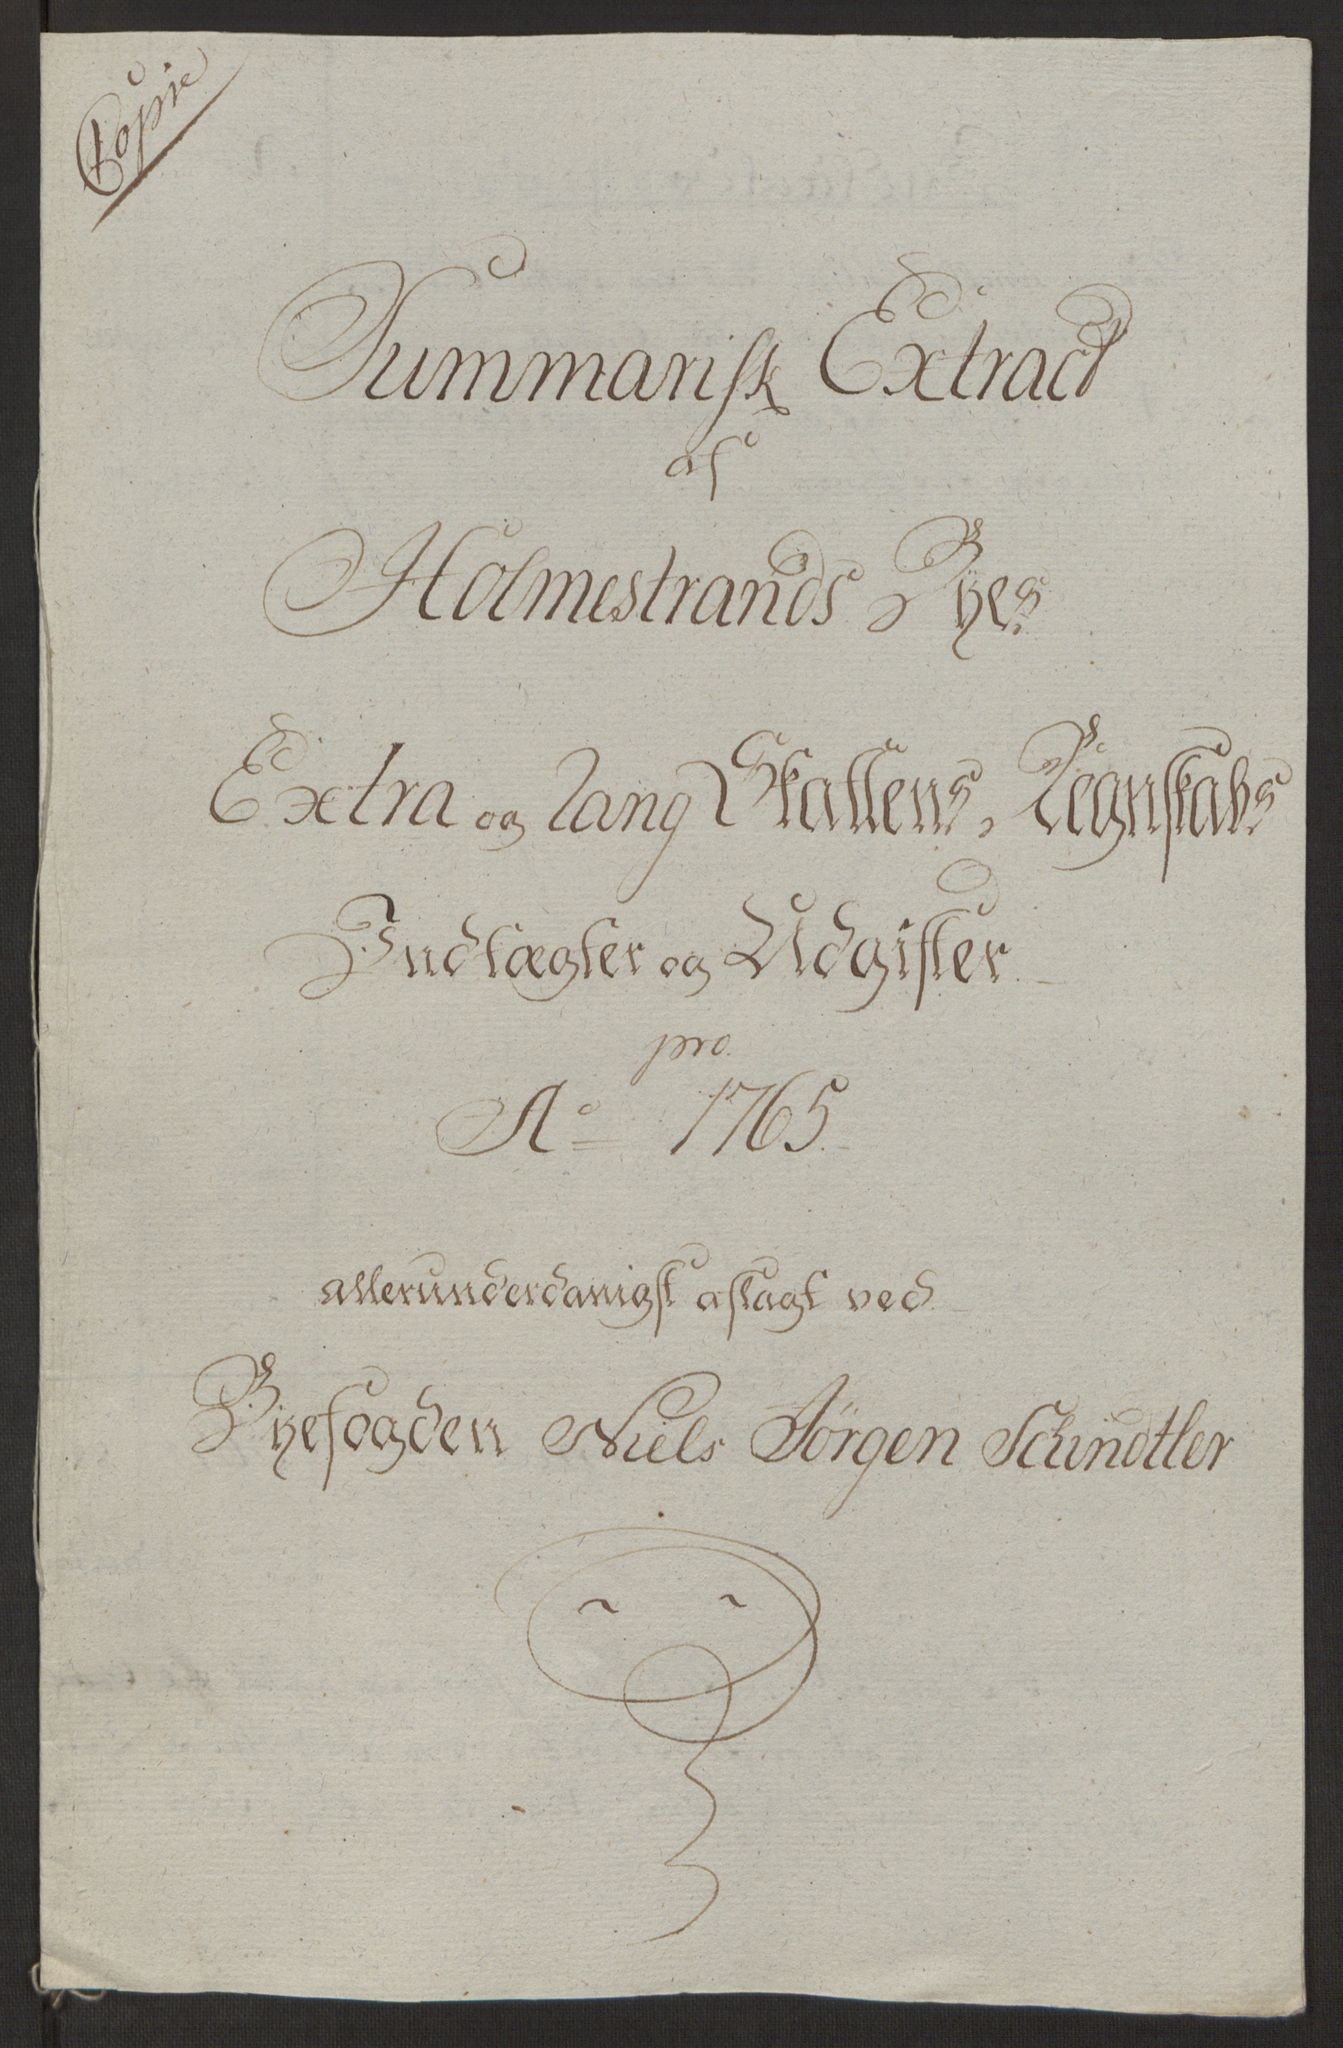 Copie
Summarisk Extract
af
Holmestrands Byes
Extra og Lang Skattens, Regnskabs
Indtægter og Udgifter
pro.
Ao 1765.
allerunderdanigst aflagt ved
Byefogden Niels Jörgen Schindtler